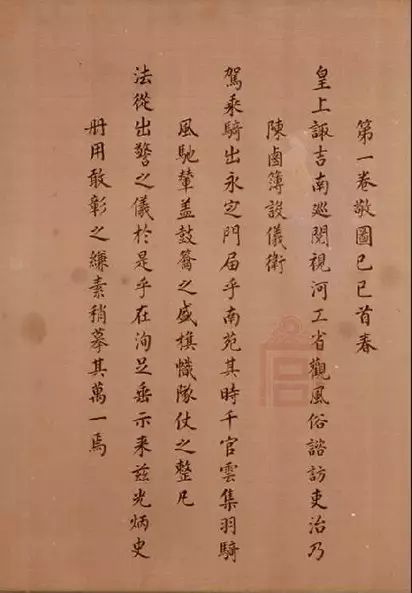 第一卷敬圖己巳首春
皇上諏吉南巡閱視河工省觀風俗諮訪吏治乃
陳鹵簿設儀衛
駕乘騎出永定門届乎南苑其時千官雲集羽騎
風馳輦蓋鼓籥之盛旗幟隊仗之整凡
法從出警之儀於是乎在洵足垂示来兹光炳史
册用敢彰之縑素稍摹其萬一焉